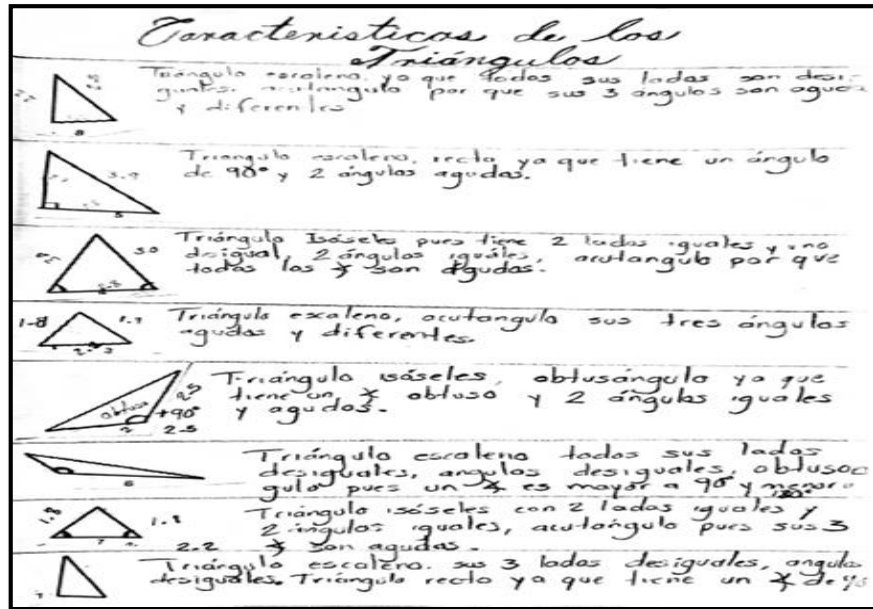 Caracteristicas de los
Triángulos
Triángulo escaleno, ya que todos sus lados son desi-
guales. acutangulo por que sus 3 angulos son agudos
y diferentes
8
Triangulo escaleno, recto ya que tiene un ángulo
de 90° y 2 ángulos agudos.
3.9
5
Triángulo Isóseles pues tiene 2 lados iguales y uno
desigual, 2 ángulos iguáles, acutangulo por que
todos los ∡ son agudas.
30
Triángulo escaleno, acutangulo sus tres ángulos
agudos y diferentes.
1.8
1.7
Triángulo isóseles, obtusángulo ya que
tiene un ∡ obtuso y 2 ángulos iguales
y agudos.
obtuso
+90°
2
2.5
Triángulo escaleno todos sus lados
desiguales, angulos desiguales, obtusoc
gulo pues un ∡ es mayor a 90° y menor
6
Triángulo isóseles con 2 lados iguales y
2 ángulos iguales, acutángulo pues sus 3
∡ son agudas.
1.8
1.8
2.2
Triángulo escaleno. sus 3 lados desiguales, angulo
desiguales. Triángulo recto ya que tiene un ∡ de